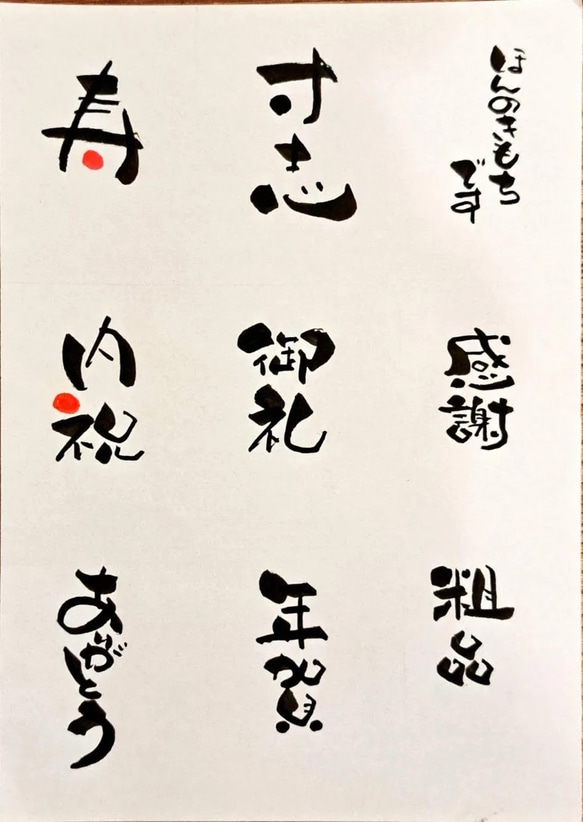 ほんのきもち
です
寸志
寿
感謝
御礼
内祝
粗品
年賀
ありがとう